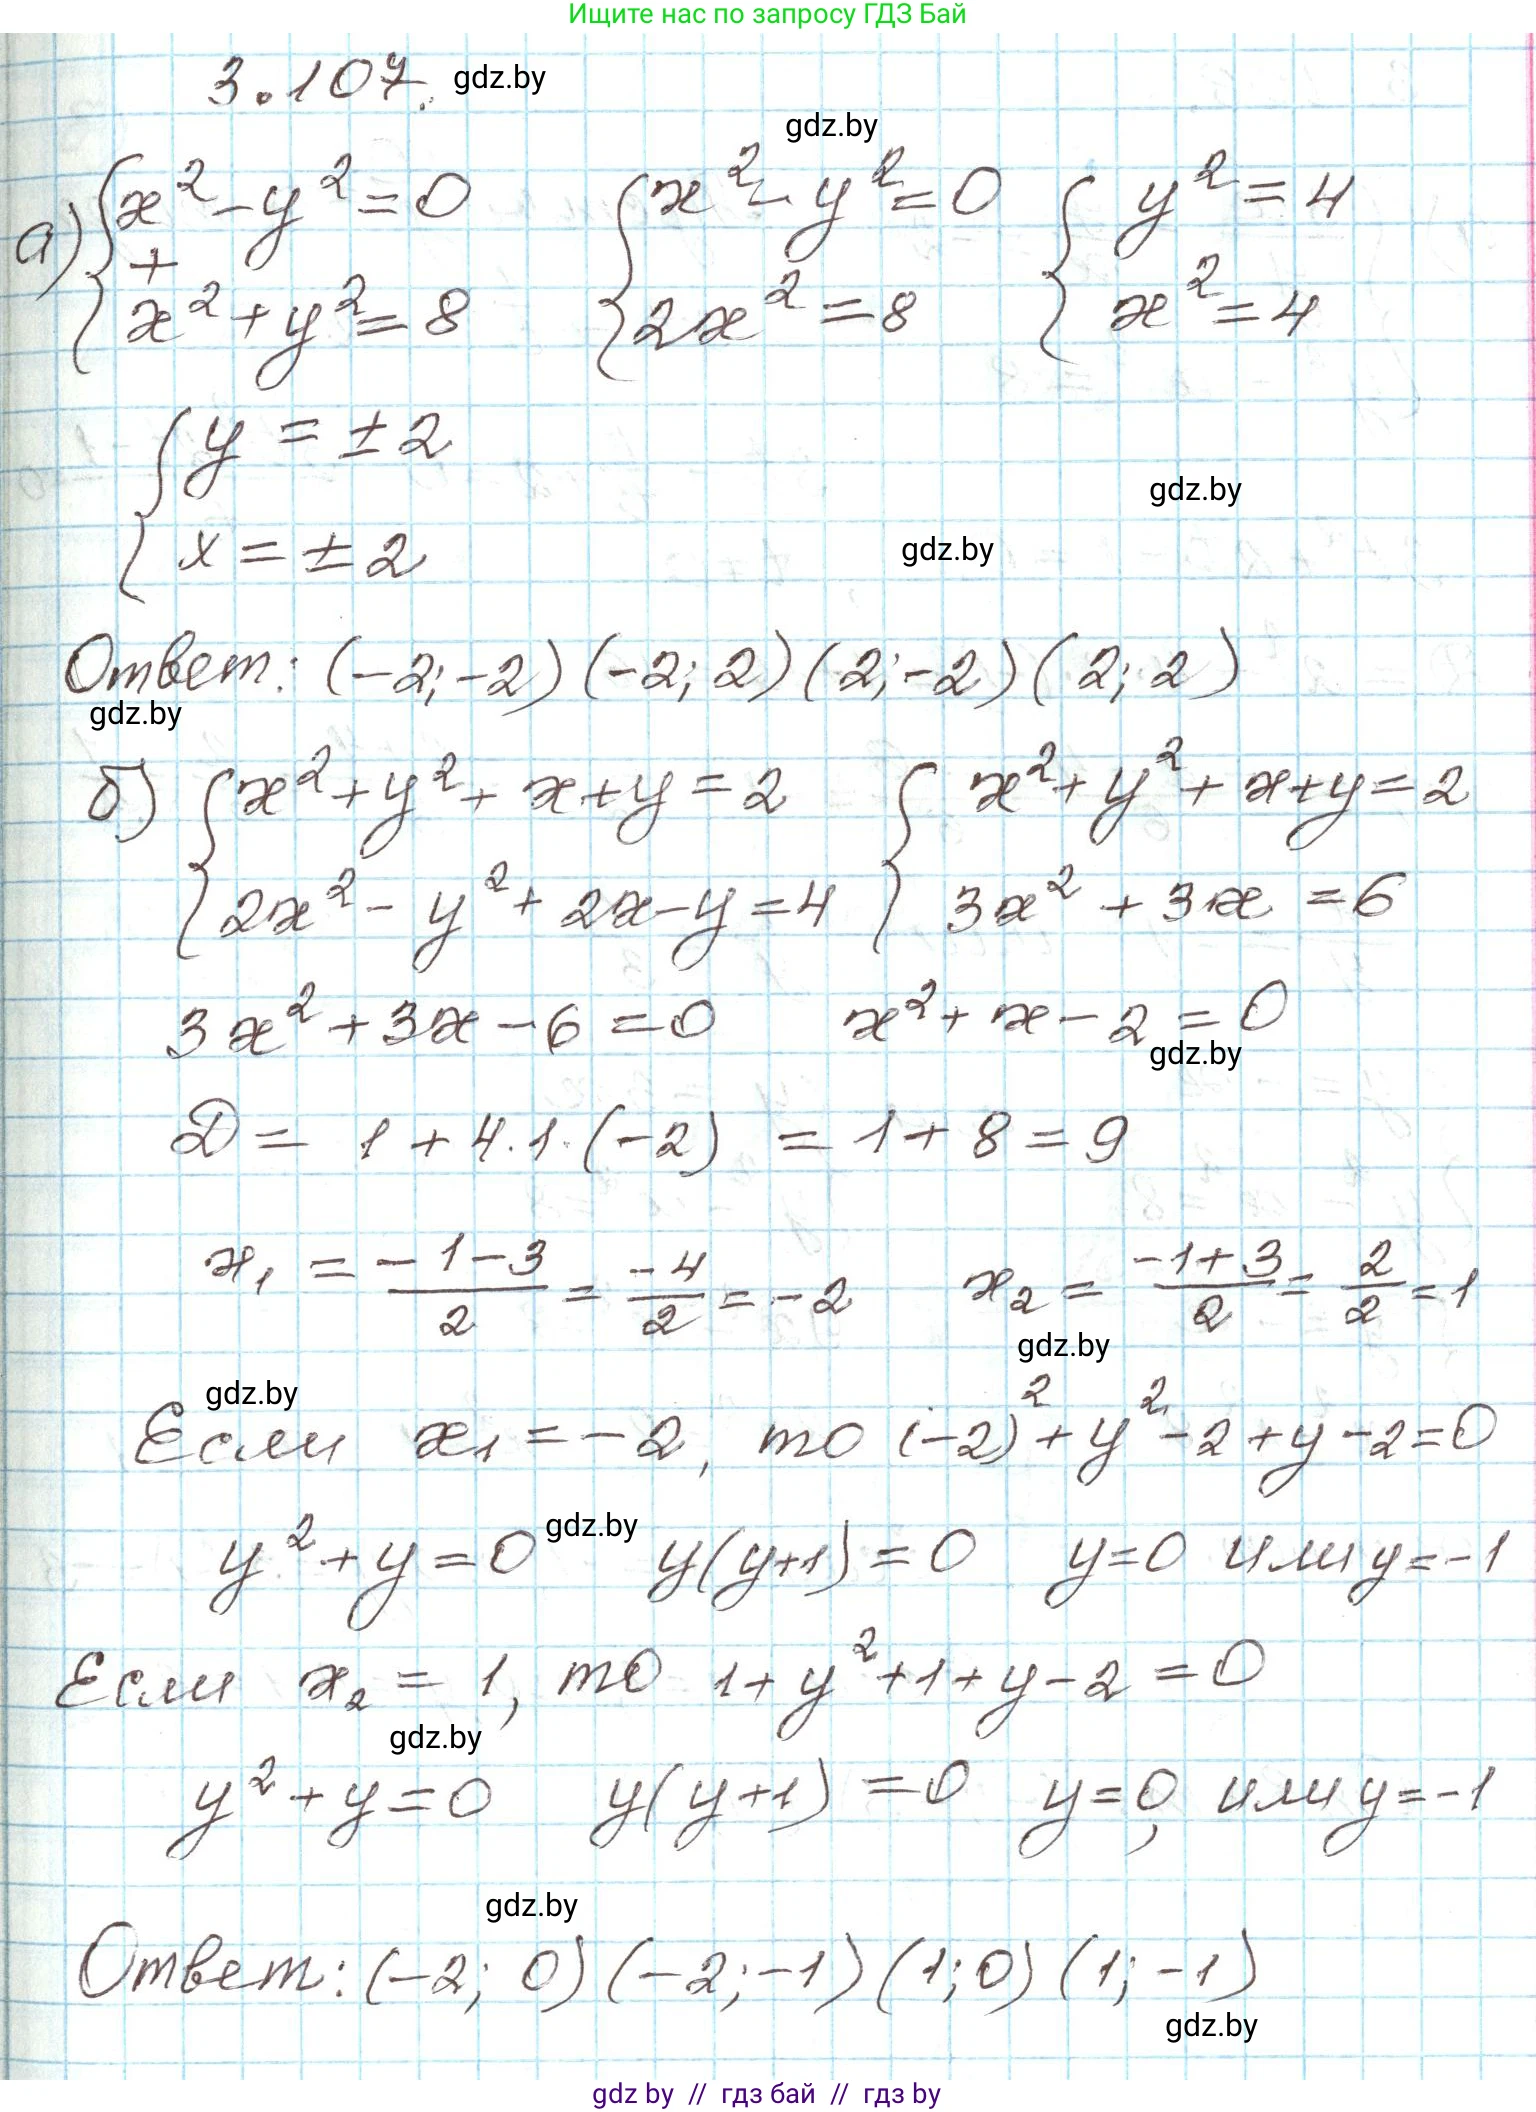 Ищите нас по запросу ГДЗ Бай
3.107. gdz.by
gdz.by
а) { x² - y² = 0 { x² - y² = 0 { y² = 4
+
x² + y² = 8 2x² = 8 x² = 4
{ y = ±2
gdz.by
x = ±2 gdz.by
Ответ: (-2; -2) (-2; 2) (2; -2) (2; 2)
gdz.by
б) { x² + y² + x + y = 2 { x² + y² + x + y = 2
2x² - y² + 2x - y = 4 3x² + 3x = 6
3x² + 3x - 6 = 0 x² + x - 2 = 0
gdz.by
D = 1 + 4·1·(-2) = 1 + 8 = 9
x₁ = (-1-3)/2 = -4/2 = -2 x₂ = (-1+3)/2 = 2/2 = 1
gdz.by
gdz.by
Если x₁ = -2, то (-2)² + y² - 2 + y - 2 = 0
y² + y = 0 gdz.by y(y+1) = 0 y = 0 или y = -1
Если x₂ = 1, то 1 + y² + 1 + y - 2 = 0
gdz.by
y² + y = 0 y(y+1) = 0 y = 0, или y = -1
gdz.by
Ответ: (-2; 0) (-2; -1) (1; 0) (1; -1)
gdz.by
gdz by // гдз бай // гдз by